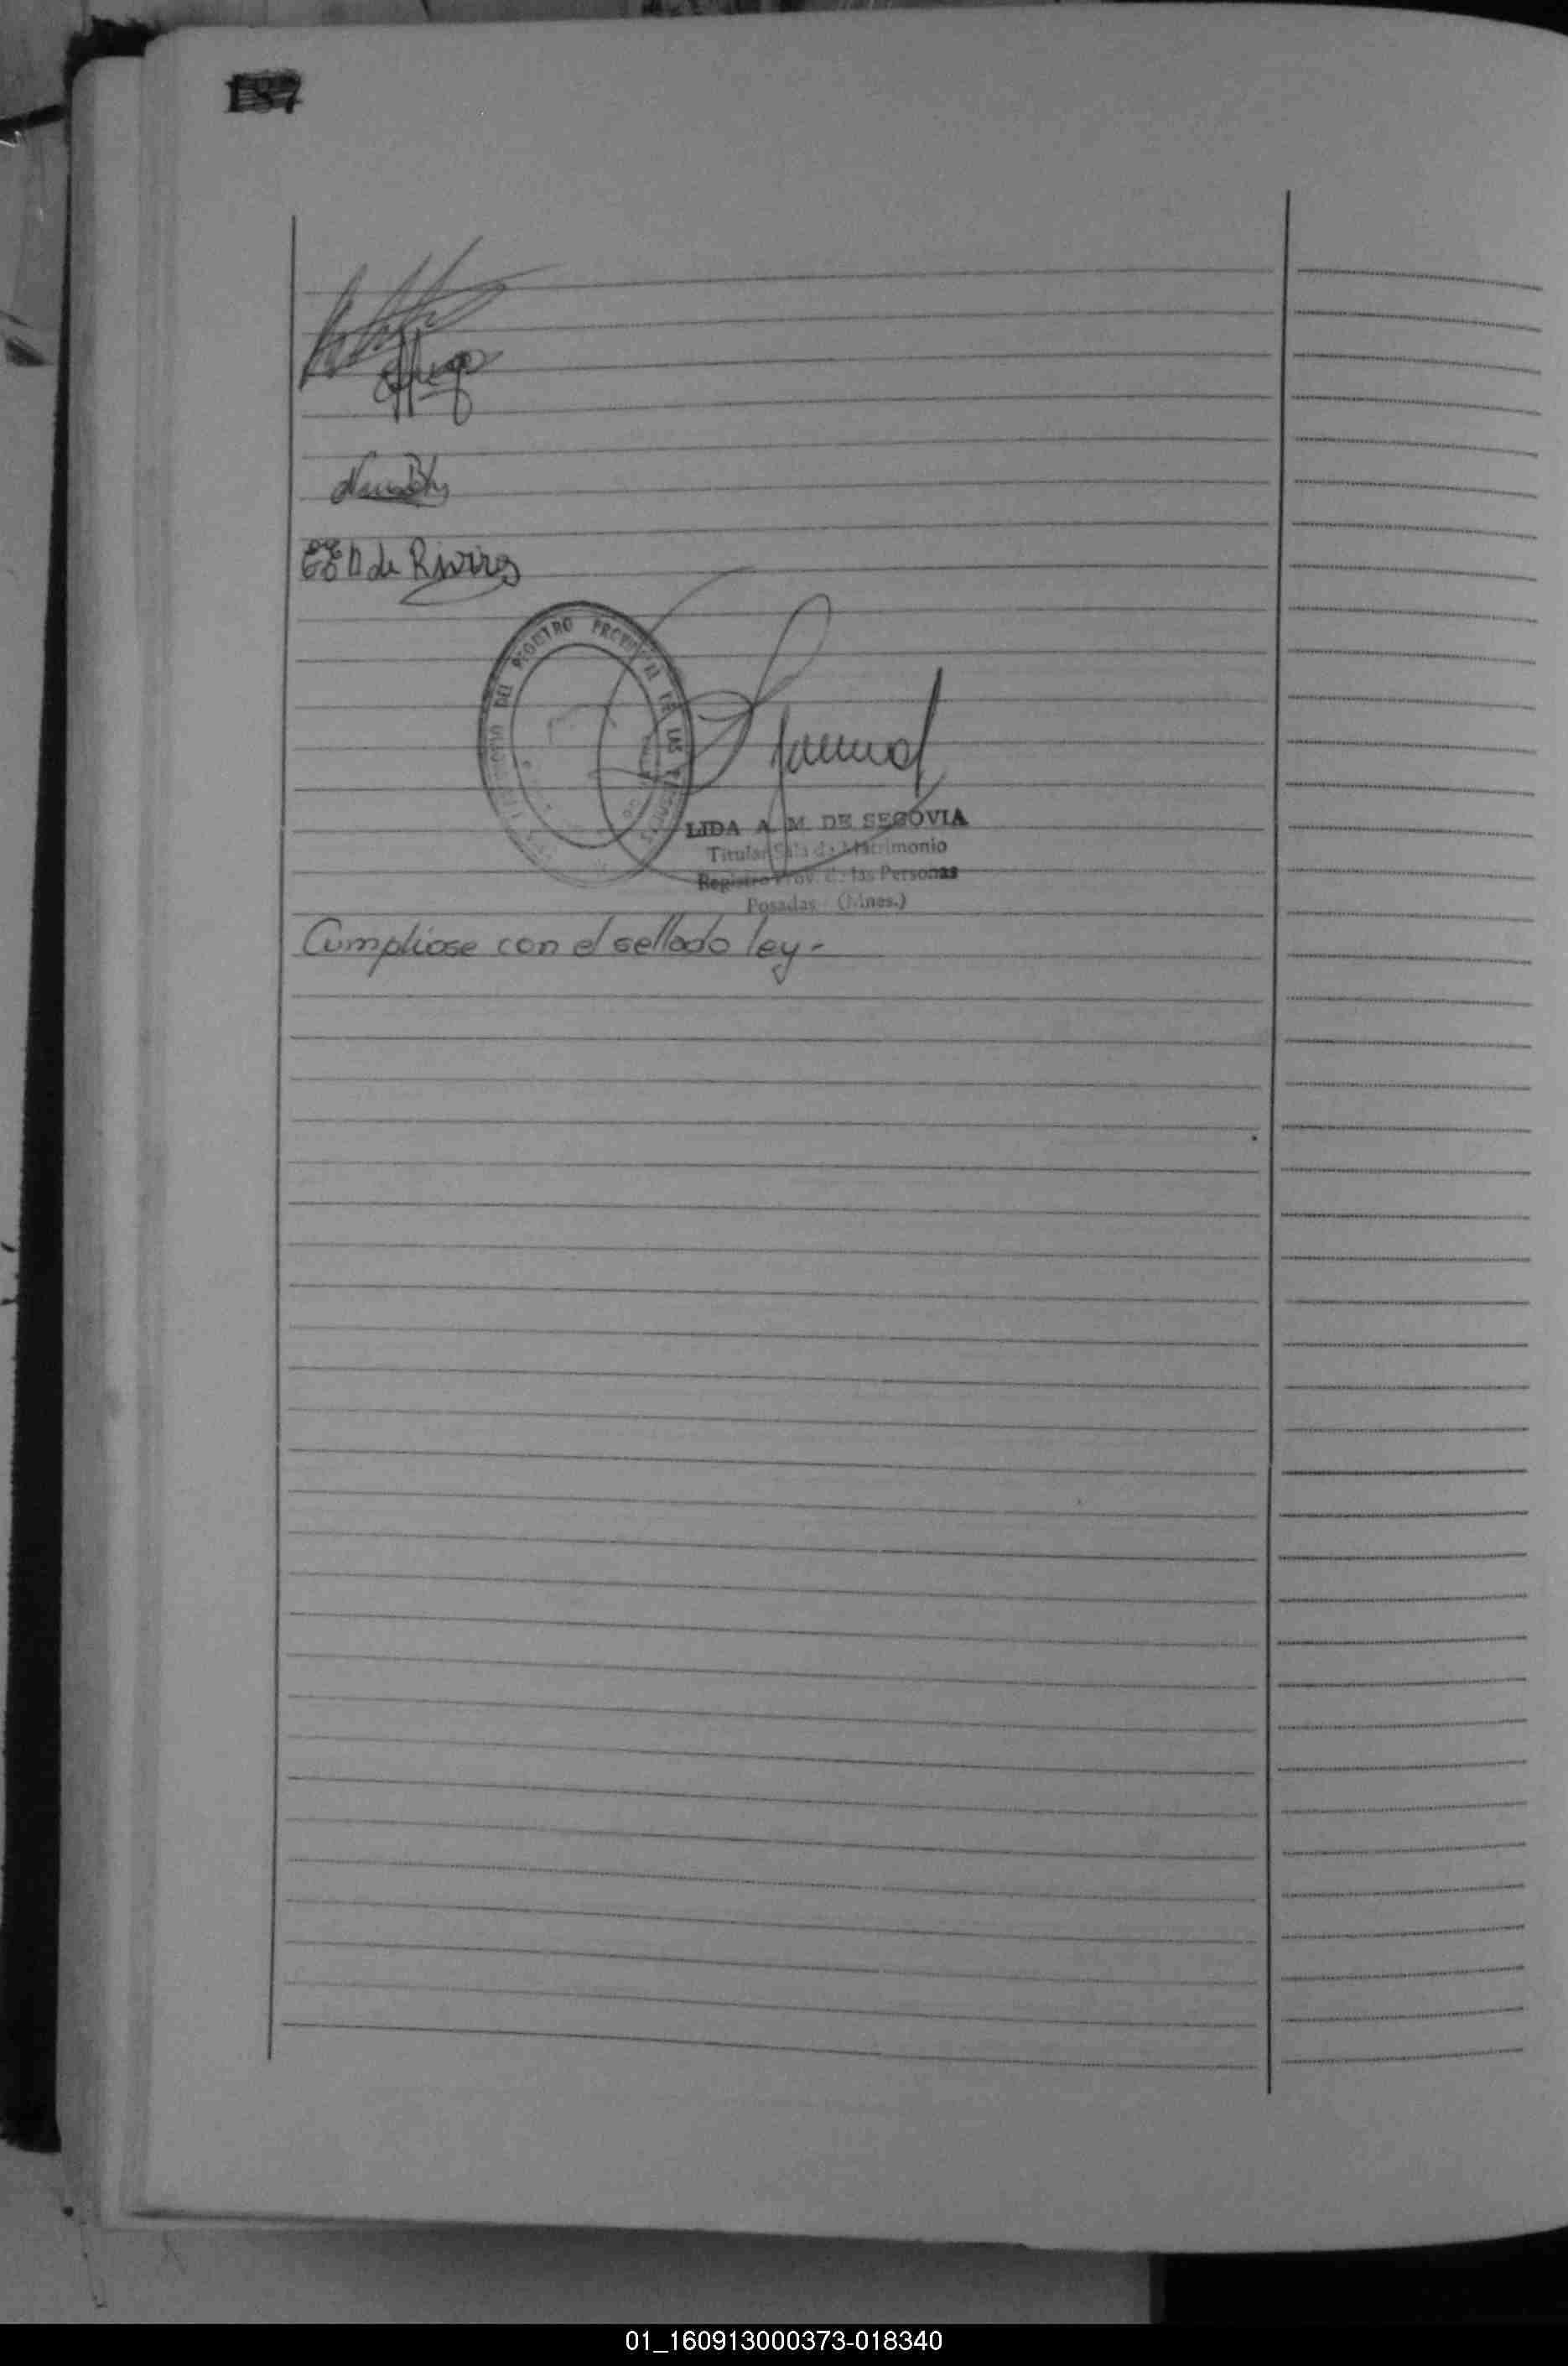 187
de Rivires
DEL REGISTRO PROVINCIAL DE LAS PERSONAS
LIDA A. M. DE SEGOVIA
Titular Sala de Matrimonio
Registro Prov. de las Personas
Posadas (Mnes.)
Cumpliose con el sellado ley.-
01_160913000373-018340